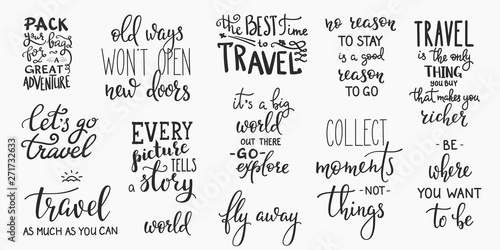 PACK
your bags
for
A
GREAT
ADVENTURE
let's go
travel
travel
AS MUCH AS YOU CAN
old ways
WON'T OPEN
new doors
EVERY
picture
TELLS
a story
world
the BEST time
to
TRAVEL
it's a big
world
OUT THERE
-GO-
explore
fly away
no reason
TO STAY
is a good
reason
TO GO
COLLECT
moments
-NOT-
things
TRAVEL
is the only
THING
YOU BUY
that makes you
richer
-BE-
where
YOU WANT
to be
Adobe Stock | #271732633